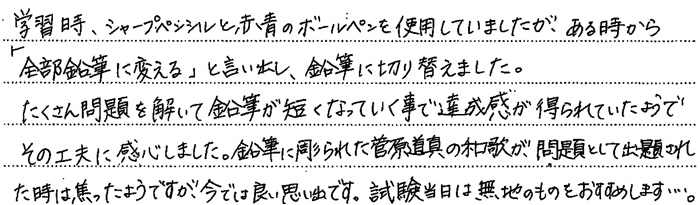 学習時、シャープペンシルと赤青のボールペンを使用していましたが、ある時から
「全部鉛筆に変える」と言い出し、鉛筆に切り替えました。
たくさん問題を解いて鉛筆が短くなっていく事で達成感が得られていたようで
その工夫に感心しました。鉛筆に彫られた菅原道真の和歌が問題として出題され
た時は焦ったようですが今では良い思い出です。試験当日は無地のものをおすすめします…。